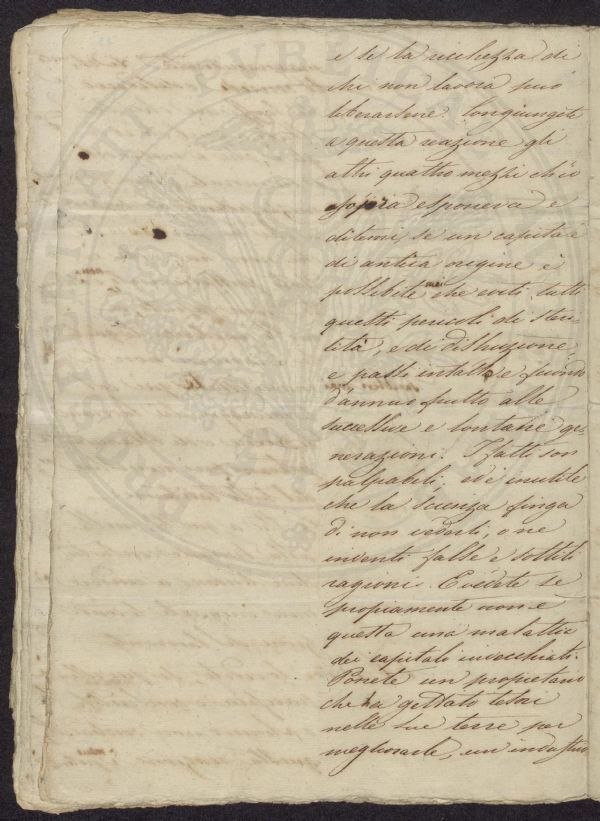 e se la ricchezza di
chi non lavora può
liberarsene. Congiungete
a questa reazione gli
altri quattro mezzi ch'io
sopra esponeva e
ditemi, se un capitale
di antica origine è
possibile mai che eviti tutti
questi pericoli di steri-
lità, e di distruzione
e passi intatto e fecondo
d'annuo frutto alle
successive e lontane ge-
nerazioni. I fatti son
palpabili, ed è inutile
che la Scienza finga
di non vederli, o ne
inventi false e sottili
ragioni. E vedete se
propiamente non è
questa una malattia
dei capitali invecchiati.
Ponete un propietario
che ha gettato tesori
nelle sue terre per
megliorarle, un industrio